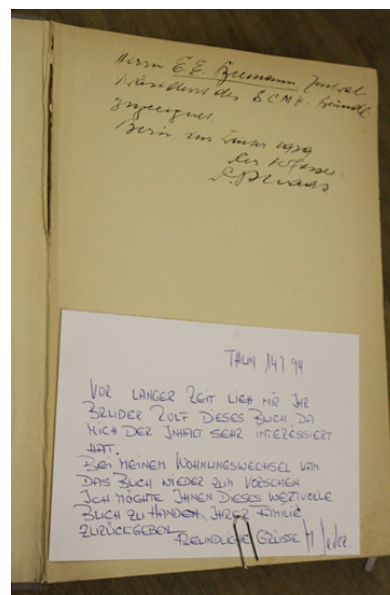 Herrn E. E. Zentral
Präsident des S.C.M.H. freundl.
zugeeignet
Bern, im 1939
Der Verfasser:
THUN 14.7.94
VOR LANGER ZEIT LIEH MIR IHR
BRUDER ROLF DIESES BUCH, DA
MICH DER INHALT SEHR INTERESSIERT
HAT.
BEI MEINEM WOHNUNGSWECHSEL KAM
DAS BUCH WIEDER ZUM VORSCHEIN
ICH MÖCHTE IHNEN DIESES WERTVOLLE
BUCH ZU HANDEN IHRER FAMILIE
ZURÜCKGEBEN.
FREUNDLICHE GRÜSSE